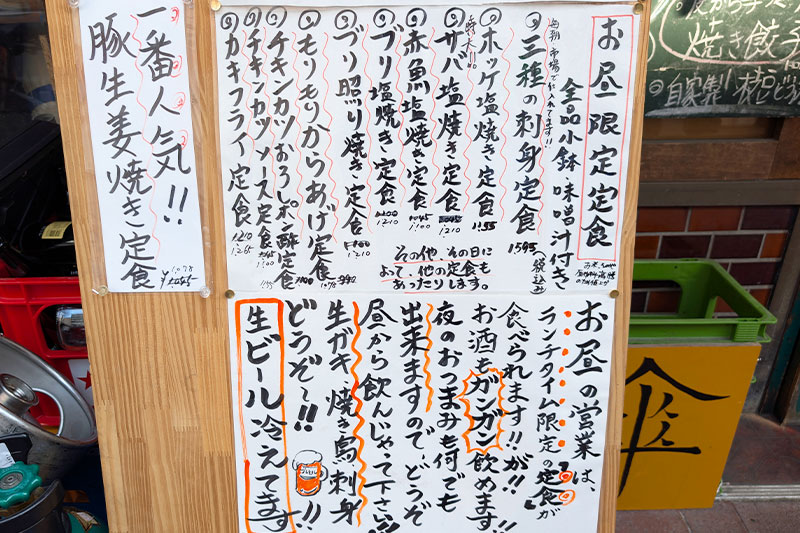 お昼限定定食
全品小鉢 味噌汁付き
三種の刺身定食 1595(税込み)
特大!!! ホッケ塩焼き定食 1155
サバ塩焼き定食 1210
赤魚塩焼き定食 1045
ブリ塩焼き定食 1100 1210
ブリ照り焼き定食 1100 1210
もりもりからあげ定食 990
チキンカツおろしポン酢定食 1155
チキンカツソース定食 1045 1100
カキフライ定食 1210 1265
その他、その日に
よって、他の定食も
あったりします。
一番人気!!
豚生姜焼き定食
1078
¥1045
お昼の営業は、
ランチタイム限定の『定食』が
食べられます!!が!!
お酒もガンガン飲めます!!
夜のおつまみも何でも
出来ますので、どうぞ
昼から飲んじゃって下さい!!
生ガキ、焼き鳥、刺身
どうぞ〜!!
生ビール冷えてます!!
焼き餃子
自家製!
傘